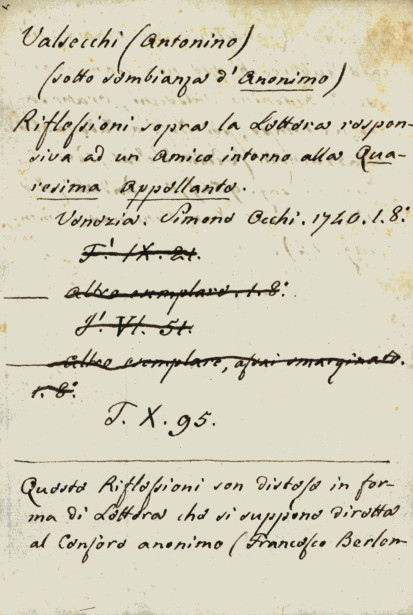 Valsecchi (Antonino)
(sotto sembianza d'Anonimo)
Riflessioni sopra la Lettera respon-
siva ad un Amico intorno alla Qua-
resima Appellante.
Venezia. Simone Occhi. 1740. 1. 8.°
T. IX. 21.
— Altro esemplare. 1. 8.°
T. VI. 51.
— Altro esemplare, assai smarginato.
1. 8.°
T. X. 95.
Queste Riflessioni son distese in for-
ma di Lettera che si suppone diretta
al Censore anonimo (Francesco Berlen-